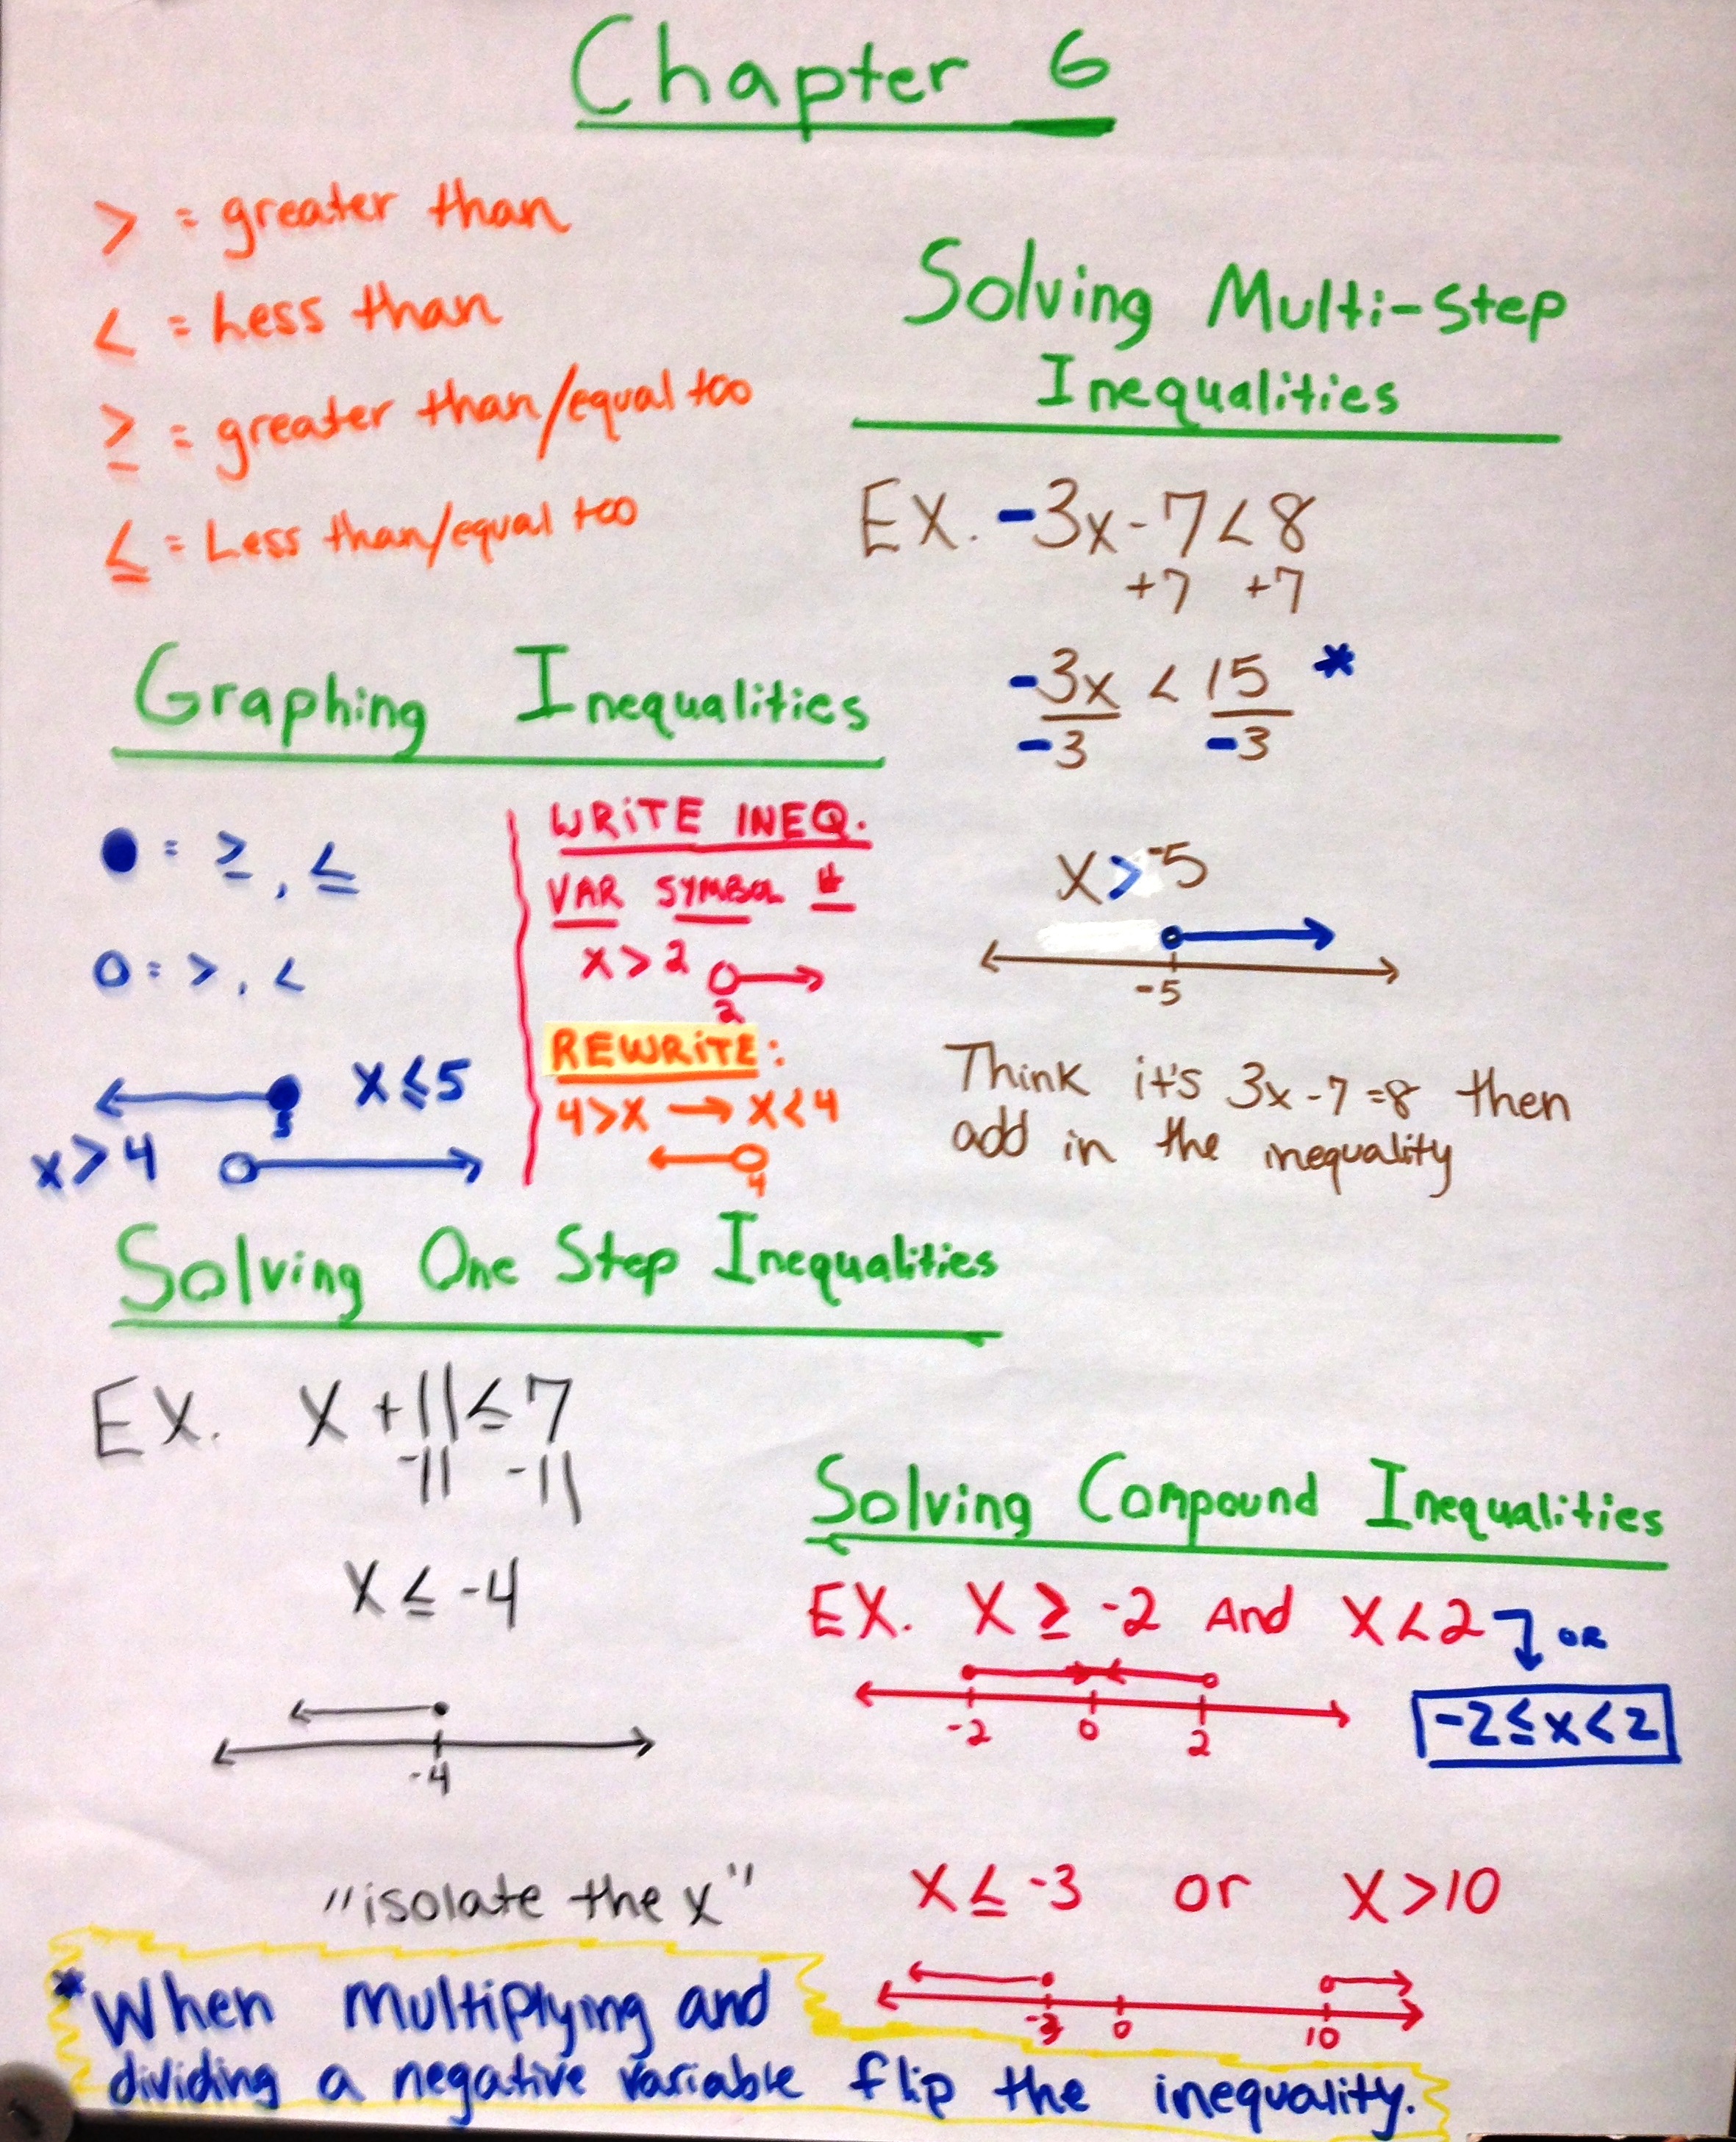 Chapter 6
> = greater than
< = Less than
≥ = greater than/equal too
≤ = Less than/equal too
Graphing Inequalities
● = ≥, ≤
○ = >, <
x≤5
5
x>4
WRiTE INEQ.
VAR SYMBOL #
x>2
2
REWRiTE:
4>x → x<4
4
Solving One Step Inequalities
EX. x+11≤7
-11 -11
x≤-4
-4
"isolate the x"
Solving Multi-Step
Inequalities
EX. -3x-7<8
+7 +7
-3x < 15 *
-3 -3
x>-5
-5
Think it's 3x-7=8 then
add in the inequality
Solving Compound Inequalities
EX. x≥-2 And x<2 or
-2 0 2
-2≤x<2
x≤-3 or x>10
-3 0 10
*When multiplying and
dividing a negative variable flip the inequality.